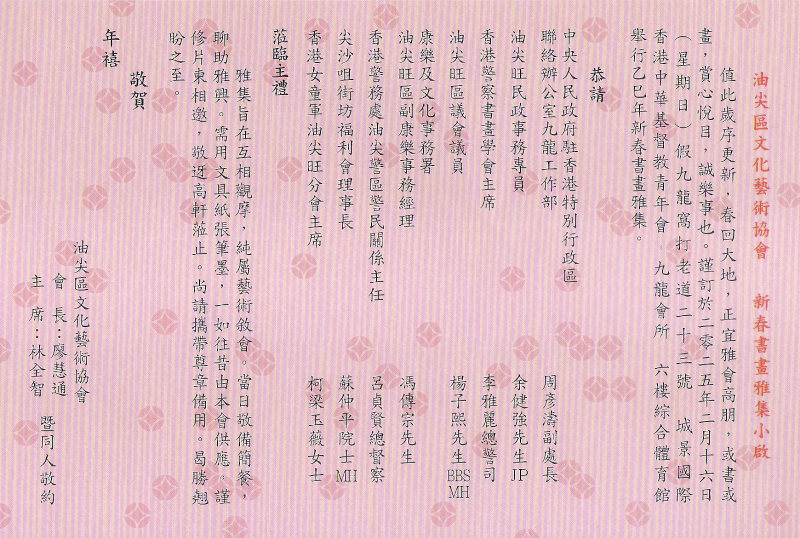 油尖區文化藝術協會　新春書畫雅集小啟
值此歲序更新，春回大地，正宜雅會高朋，或書或
畫，賞心悅目，誠樂事也。謹訂於二零二五年二月十六日
（星期日）假九龍窩打老道二十三號　城景國際
香港中華基督教青年會　九龍會所　六樓綜合體育館
舉行乙巳年新春書畫雅集。
恭請
中央人民政府駐香港特別行政區
聯絡辦公室九龍工作部　周彥濤副處長
油尖旺民政事務專員　余健強先生JP
香港警察書畫學會主席　李雅麗總警司
油尖旺區議會議員　楊子熙先生BBS MH
康樂及文化事務署
油尖旺區副康樂事務經理　馮傳宗先生
香港警務處油尖警區警民關係主任　呂貞賢總督察
尖沙咀街坊福利會理事長　蘇仲平院士MH
香港女童軍油尖旺分會主席　柯梁玉薇女士
蒞臨主禮
雅集旨在互相觀摩，純屬藝術敘會。當日敬備簡餐，
聊助雅興。需用文具紙張筆墨，一如往昔由本會供應。謹
修片柬相邀，敬迓高軒蒞止。尚請攜帶尊章備用。曷勝翹
盼之至。
敬賀
年禧
油尖區文化藝術協會
會長：廖慧通
主席：林全智　暨同人敬約